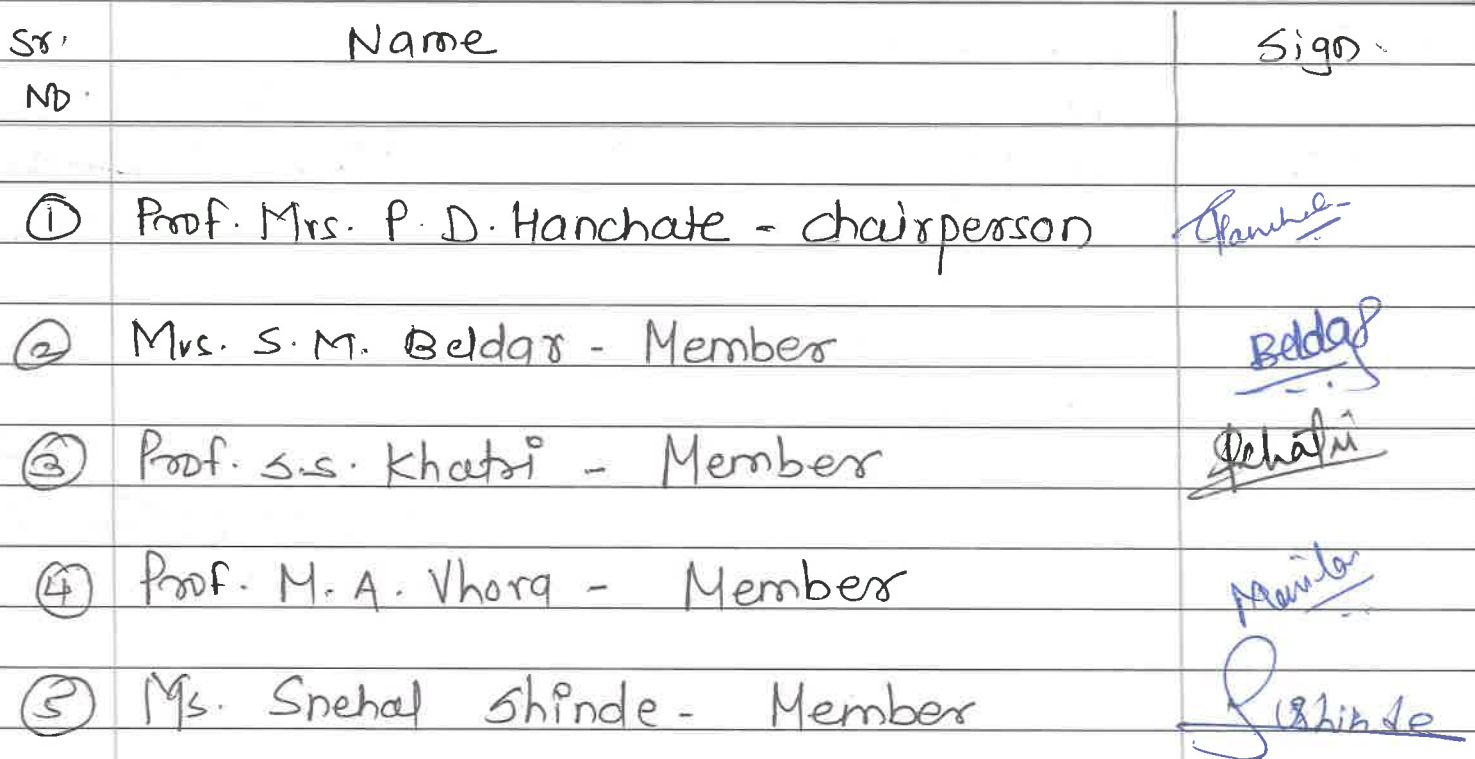 Sr. Name Sign.
No.
1 Prof. Mrs. P. D. Hanchate - chairperson
2 Mrs. S. M. Beldar - Member Beldar
3 Prof. S.S. Khatri - Member Khatri
4 Prof. M. A. Vhora - Member
5 Ms. Snehal Shinde - Member Shinde